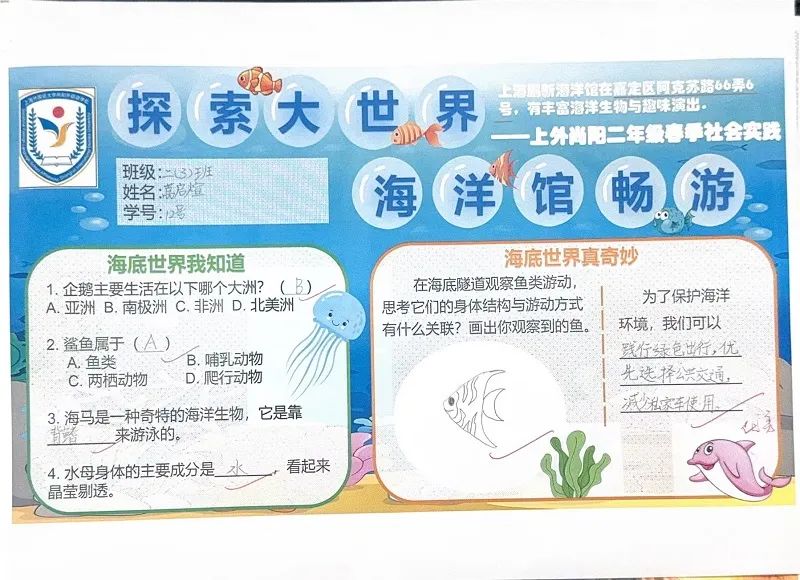 探索大世界
上海鹏新海洋馆在嘉定区阿克苏路66弄6
号，有丰富海洋生物与趣味演出.
——上外尚阳二年级春季社会实践
海洋馆畅游
班级:二(3)班
姓名:
学号:12号
海底世界我知道
1. 企鹅主要生活在以下哪个大洲？（ B ）
A. 亚洲 B. 南极洲 C. 非洲 D. 北美洲
2. 鲨鱼属于（ A ）
A. 鱼类 B. 哺乳动物
C. 两栖动物 D. 爬行动物
3. 海马是一种奇特的海洋生物，它是靠
背鳍来游泳的。
4. 水母身体的主要成分是水，看起来
晶莹剔透。
海底世界真奇妙
在海底隧道观察鱼类游动，
思考它们的身体结构与游动方式
有什么关联？画出你观察到的鱼。
为了保护海洋
环境，我们可以
践行绿色出行，优
先选择公共交通，
减少私家车使用。
优秀